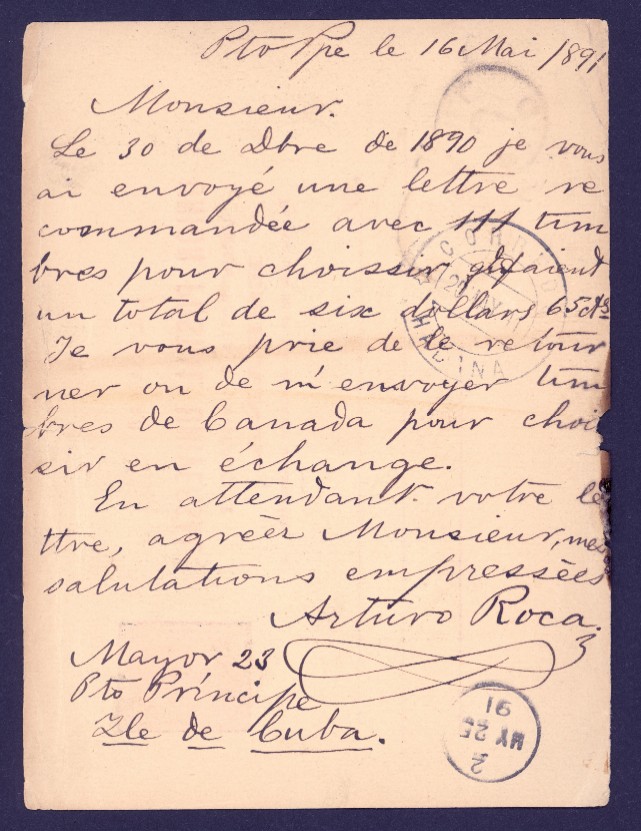 Pto Ppe le 16 Mai 1891
Monsieur.
Le 30 de Dbre de 1890 je vous
ai envoyé une lettre re
commandée avec 111 tim
bres pour choissir q̃ faient
un total de six dollars 65 cts
Je vous prie de le retour
ner ou de m'envoyer tim
bres de Canada pour choi
sir en échange.
En attendant votre le
ttre, agréer Monsieur, mes
salutations empressées
Arturo Roca.
Mayor 23
Pto Príncipe
Ile de Cuba.
CORREOS
HABANA
2
MY 26
91